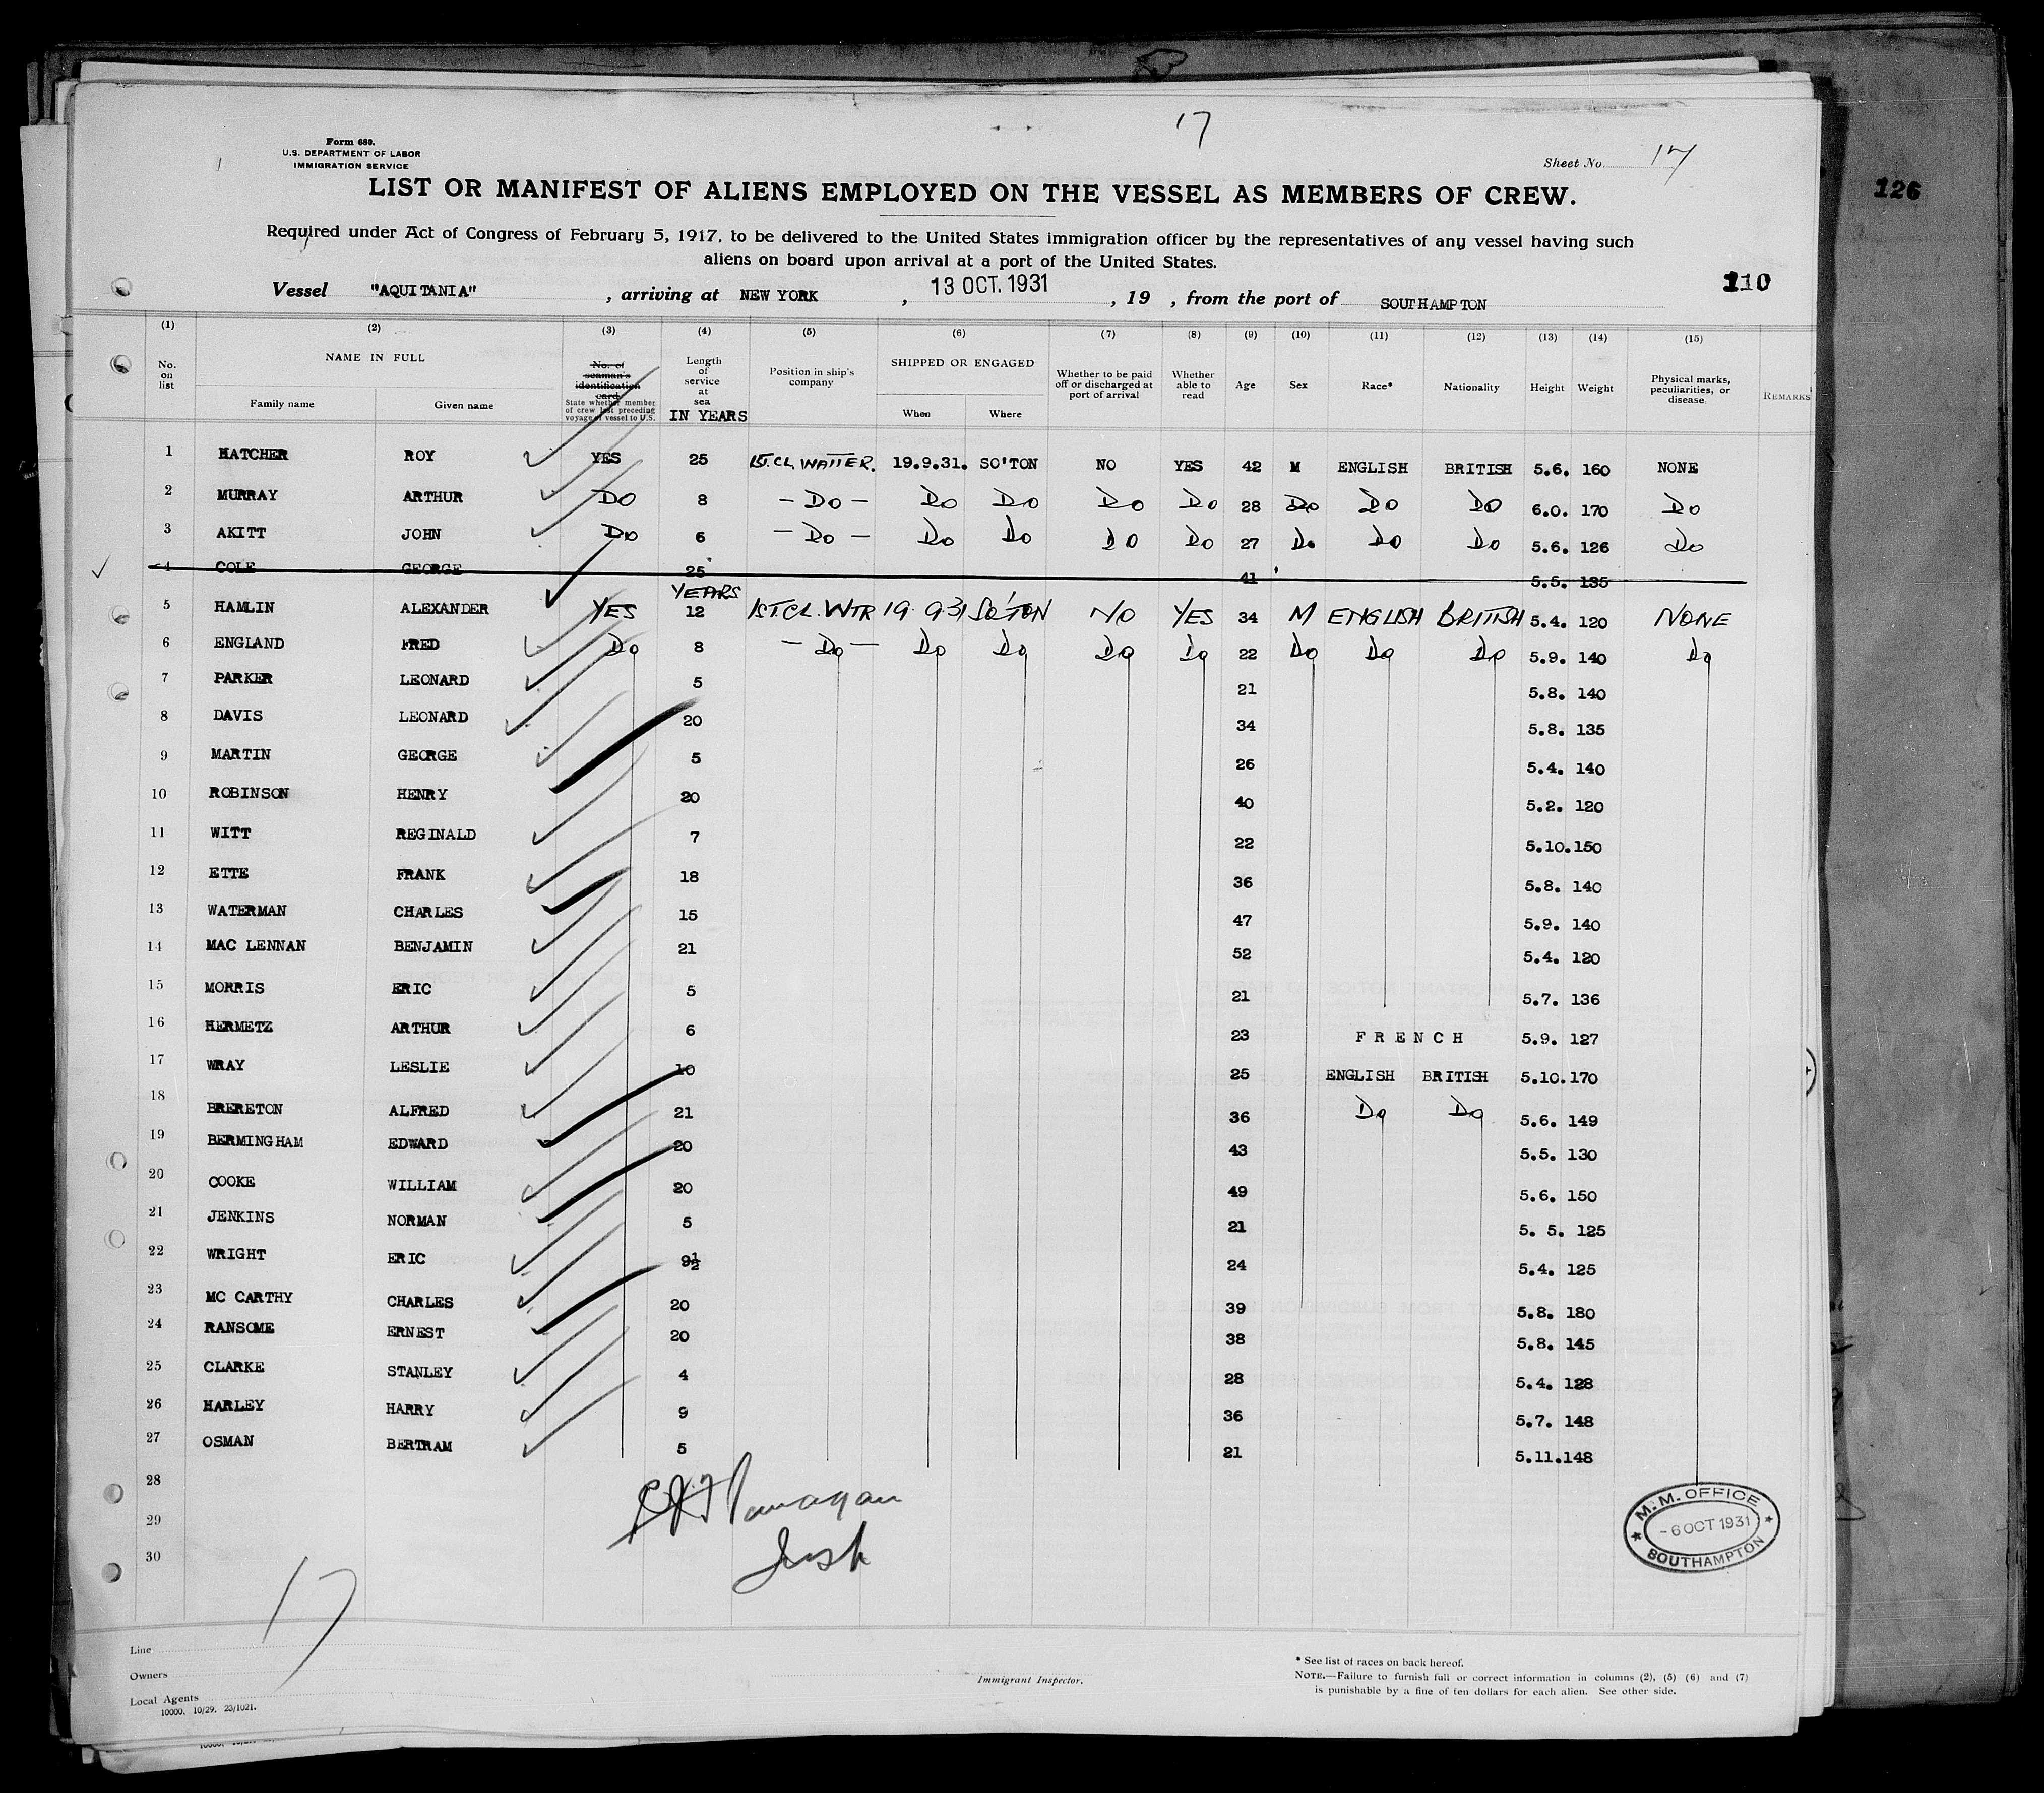 17
Form 680.
U.S. DEPARTMENT OF LABOR
IMMIGRATION SERVICE
Sheet No. 17
LIST OR MANIFEST OF ALIENS EMPLOYED ON THE VESSEL AS MEMBERS OF CREW.
126
Required under Act of Congress of February 5, 1917, to be delivered to the United States immigration officer by the representatives of any vessel having such
aliens on board upon arrival at a port of the United States.
110
Vessel "AQUITANIA" , arriving at NEW YORK , 13 OCT. 1931 , 19 , from the port of SOUTHAMPTON
(1) (2) (3) (4) (5) (6) (7) (8) (9) (10) (11) (12) (13) (14) (15)
No. on list
NAME IN FULL
Family name Given name
No. of seaman's identification card
State whether member of crew last preceding voyage of vessel to U.S.
Length of service at sea
IN YEARS
Position in ship's company
SHIPPED OR ENGAGED
When Where
Whether to be paid off or discharged at port of arrival
Whether able to read
Age
Sex
Race*
Nationality
Height
Weight
Physical marks, peculiarities, or disease
REMARKS
1 HATCHER ROY YES 25 1ST.CL WAITER. 19.9.31. SO'TON NO YES 42 M ENGLISH BRITISH 5.6. 160 NONE
2 MURRAY ARTHUR DO 8 - DO - DO DO DO DO 28 DO DO DO 6.0. 170 DO
3 AKITT JOHN DO 6 - DO - DO DO DO DO 27 DO DO DO 5.6. 126 DO
4 COLE GEORGE 25 41 5.5. 135
YEARS
5 HAMLIN ALEXANDER YES 12 1ST.CL.WTR 19 9 31 SO'TON NO YES 34 M ENGLISH BRITISH 5.4. 120 NONE
6 ENGLAND FRED DO 8 - DO - DO DO DO DO 22 DO DO DO 5.9. 140 DO
7 PARKER LEONARD 5 21 5.8. 140
8 DAVIS LEONARD 20 34 5.8. 135
9 MARTIN GEORGE 5 26 5.4. 140
10 ROBINSON HENRY 20 40 5.2. 120
11 WITT REGINALD 7 22 5.10. 150
12 ETTE FRANK 18 36 5.8. 140
13 WATERMAN CHARLES 15 47 5.9. 140
14 MAC LENNAN BENJAMIN 21 52 5.4. 120
15 MORRIS ERIC 5 21 5.7. 136
16 HERMETZ ARTHUR 6 23 FRENCH 5.9. 127
17 WRAY LESLIE 10 25 ENGLISH BRITISH 5.10. 170
18 BRERETON ALFRED 21 36 DO DO 5.6. 149
19 BERMINGHAM EDWARD 20 43 5.5. 130
20 COOKE WILLIAM 20 49 5.6. 150
21 JENKINS NORMAN 5 21 5. 5. 125
22 WRIGHT ERIC 9½ 24 5.4. 125
23 MC CARTHY CHARLES 20 39 5.8. 180
24 RANSOME ERNEST 20 38 5.8. 145
25 CLARKE STANLEY 4 28 5.4. 128
26 HARLEY HARRY 9 36 5.7. 148
27 OSMAN BERTRAM 5 21 5.11. 148
28
29
30
M. M. OFFICE
- 6 OCT 1931
SOUTHAMPTON
17
Line
Owners
Local Agents
10000. 10/29. 23/1021.
Immigrant Inspector.
* See list of races on back hereof.
NOTE.—Failure to furnish full or correct information in columns (2), (5) (6) and (7)
is punishable by a fine of ten dollars for each alien. See other side.